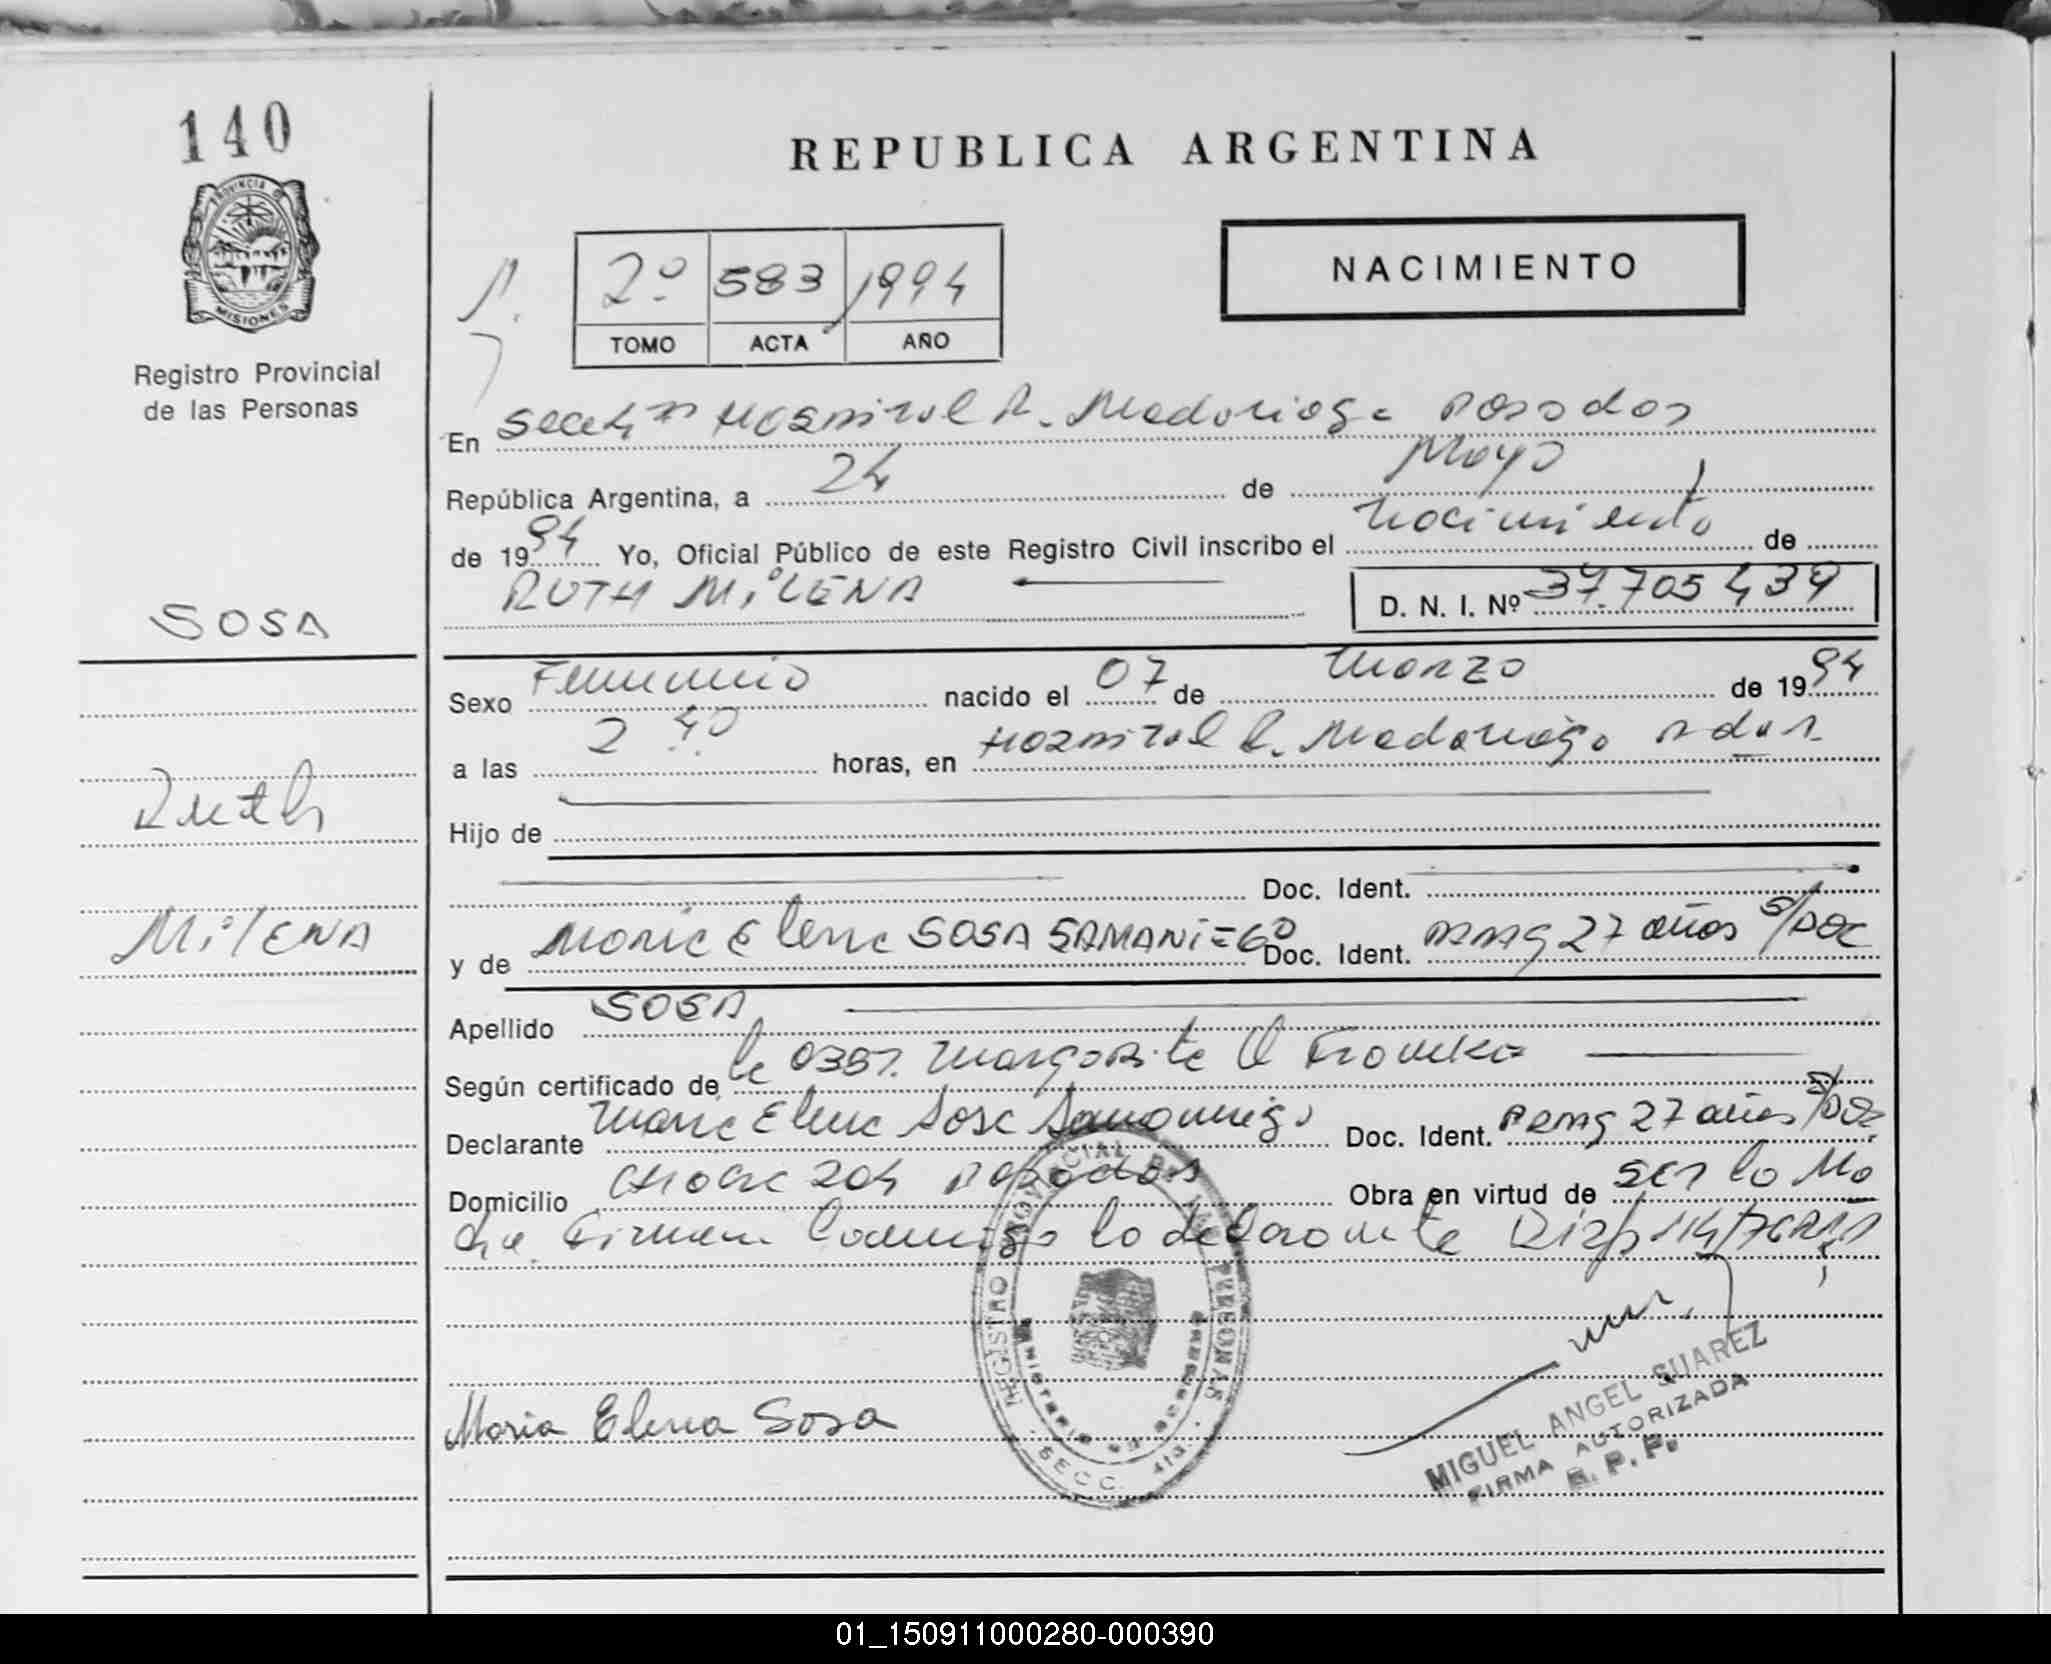 140
REPUBLICA ARGENTINA
PROVINCIA DE
MISIONES
Registro Provincial
de las Personas
2º 583 1994
TOMO ACTA AÑO
NACIMIENTO
En Hospital R. Madariaga Posadas
República Argentina, a 24 de Mayo
de 1994 Yo, Oficial Público de este Registro Civil inscribo el nacimiento de
RUTH MiLENA
D. N. I. Nº 37.705439
SOSA
Ruth
MilENA
Sexo Femenino nacido el 07 de Marzo de 1994
a las 2 40 horas, en Hospital R. Madariaga
Hijo de
Doc. Ident.
y de Maria Elena SOSA SAMANiEGO Doc. Ident. 27 años S/DOC
Apellido SOSA
Según certificado de la Obst. Margarita
Declarante Maria Elena Sosa Samaniego Doc. Ident. 27 años S/Doc
Domicilio 204 Posadas Obra en virtud de ser la Ma
dre. Firman Conmigo la declarante
Maria Elena Sosa
REGISTRO PROVINCIAL DE LAS PERSONAS
SECC.
MIGUEL ANGEL SUAREZ
FIRMA AUTORIZADA
R. P. P.
01_150911000280-000390